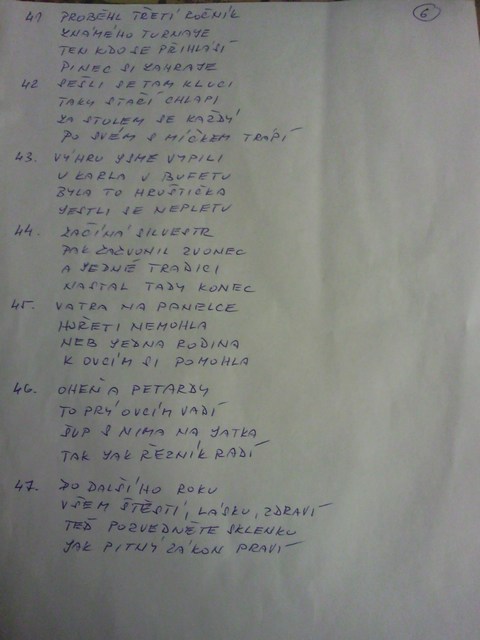 6
41 PROBĚHL TŘETÍ ROČNÍK
ZNÁMÉHO TURNAJE
TEN KDO SE PŘIHLÁSÍ
PINEC SI ZAHRAJE
42 SEŠLI SE TAM KLUCI
TAKY STAČÍ CHLAPI
ZA STOLEM SE KAŽDÝ
PO SVÉM S MÍČKEM TRÁPÍ
43. VÝHRU JSME VYPILI
U KARLA V BUFETU
BYLA TO HRUŠTIČKA
JESTLI SE NEPLETU
44. ZAČÍNÁ SILVESTR
PAK ZAZVONIL ZVONEC
A JEDNÉ TRADICI
NASTAL TADY KONEC
45. VATRA NA PANELCE
HOŘETI NEMOHLA
NEB JEDNA RODINA
K OVCÍM SI POMOHLA
46. OHEŇ A PETARDY
TO PRÝ OVCÍM VADÍ
ŠUP S NIMA NA JATKA
TAK JAK ŘEZNÍK RADÍ
47. DO DALŠÍHO ROKU
VŠEM ŠTĚSTÍ, LÁSKU, ZDRAVÍ
TEĎ POZVEDNĚTE SKLENKU
JAK PITNÝ ZÁKON PRAVÍ